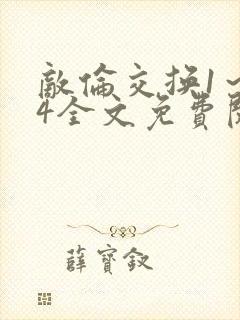 敵倫交換1～
4全文免費閱
薛寶釵